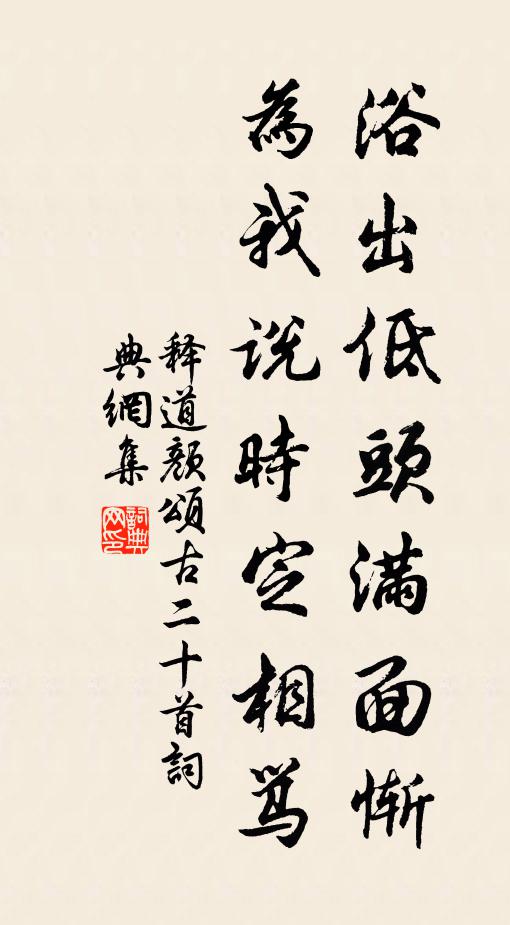 浴出低頭满面慚
為我说時定相骂
释道颜頌古二十首詞
典網集
詞典網印